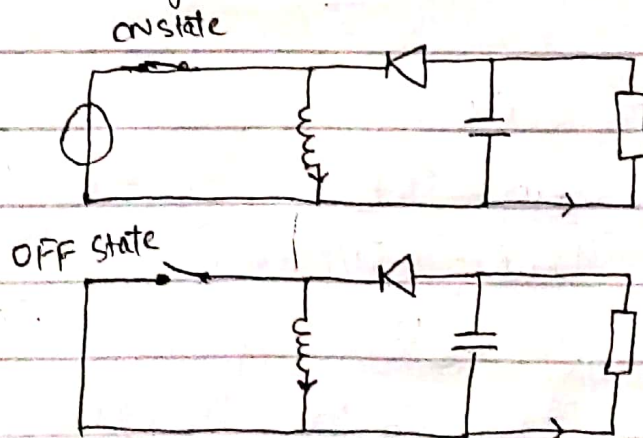 ON state
OFF state